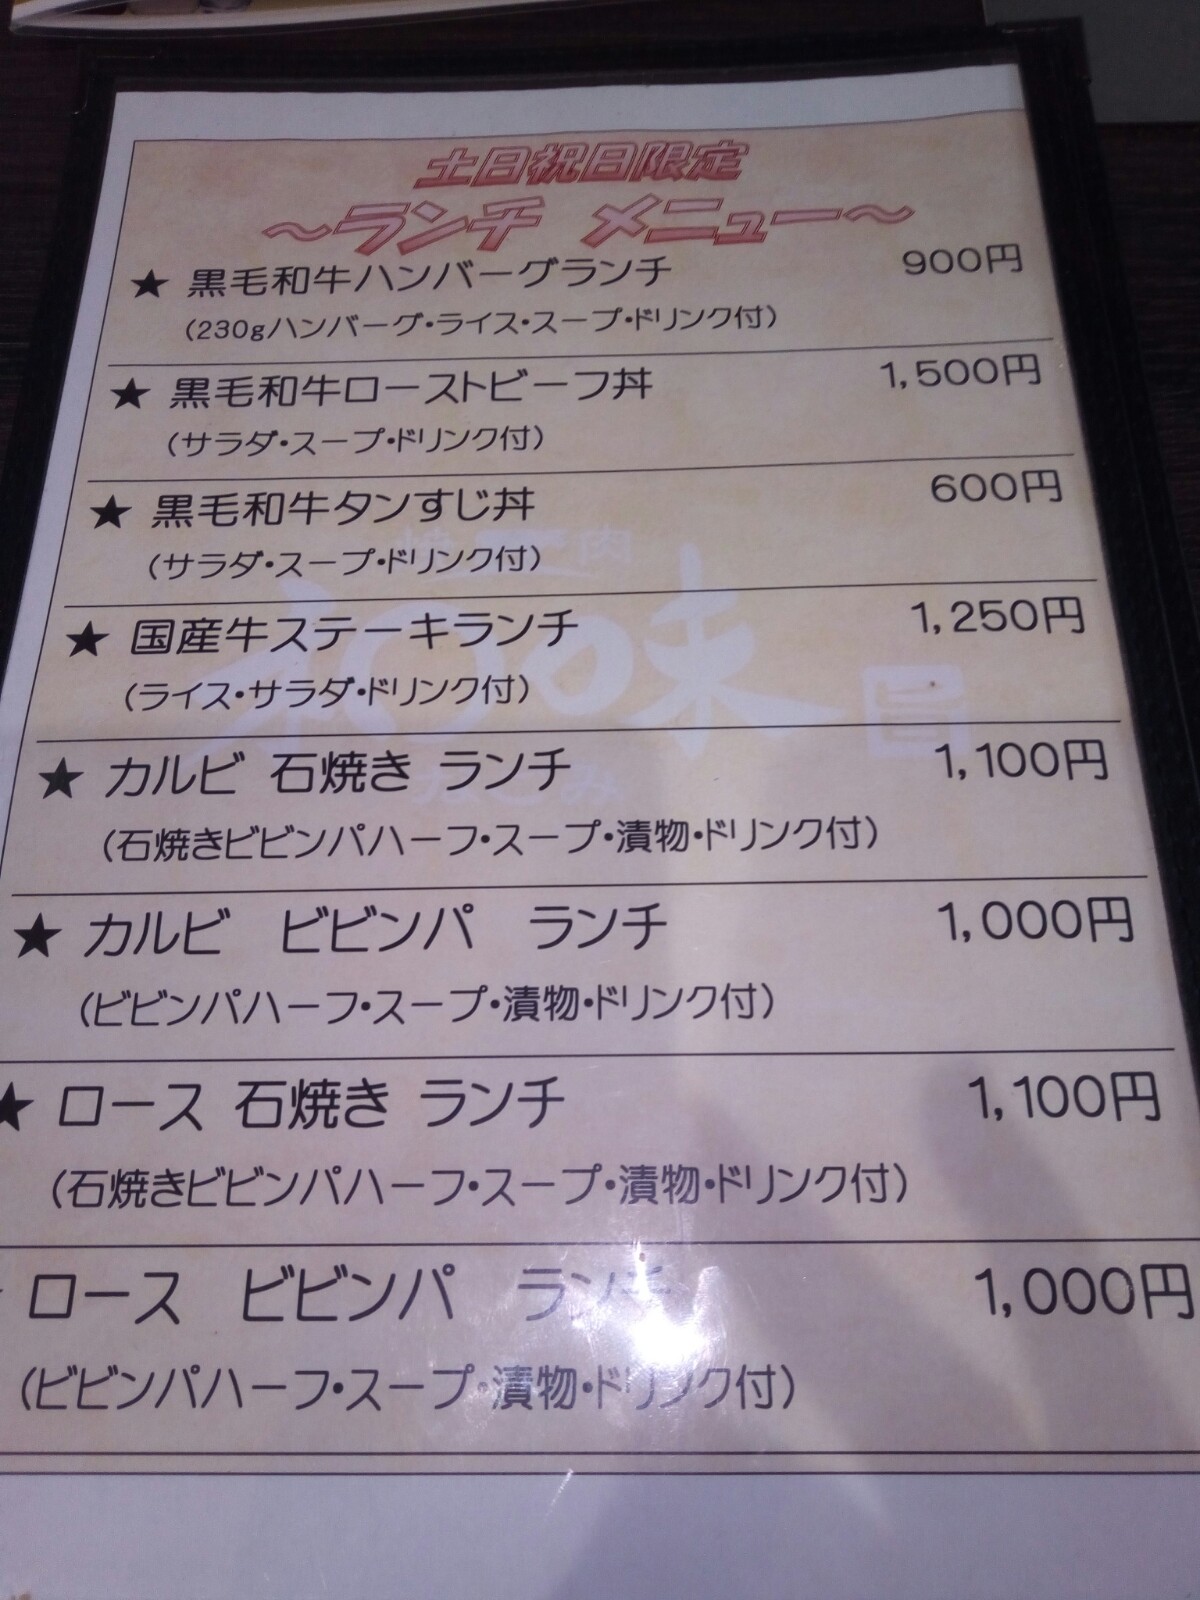 土日祝日限定
～ランチ メニュー～
★ 黒毛和牛ハンバーグランチ 900円
(230gハンバーグ・ライス・スープ・ドリンク付)
★ 黒毛和牛ローストビーフ丼 1,500円
(サラダ・スープ・ドリンク付)
★ 黒毛和牛タンすじ丼 600円
(サラダ・スープ・ドリンク付)
★ 国産牛ステーキランチ 1,250円
(ライス・サラダ・ドリンク付)
★ カルビ 石焼き ランチ 1,100円
(石焼きビビンパハーフ・スープ・漬物・ドリンク付)
★ カルビ ビビンパ ランチ 1,000円
(ビビンパハーフ・スープ・漬物・ドリンク付)
★ ロース 石焼き ランチ 1,100円
(石焼きビビンパハーフ・スープ・漬物・ドリンク付)
ロース ビビンパ ランチ 1,000円
(ビビンパハーフ・スープ・漬物・ドリンク付)